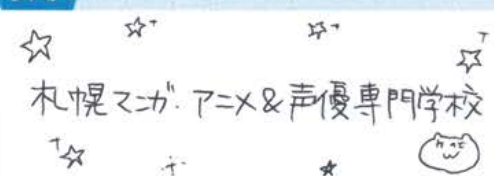 札幌マンガ・アニメ&声優専門学校